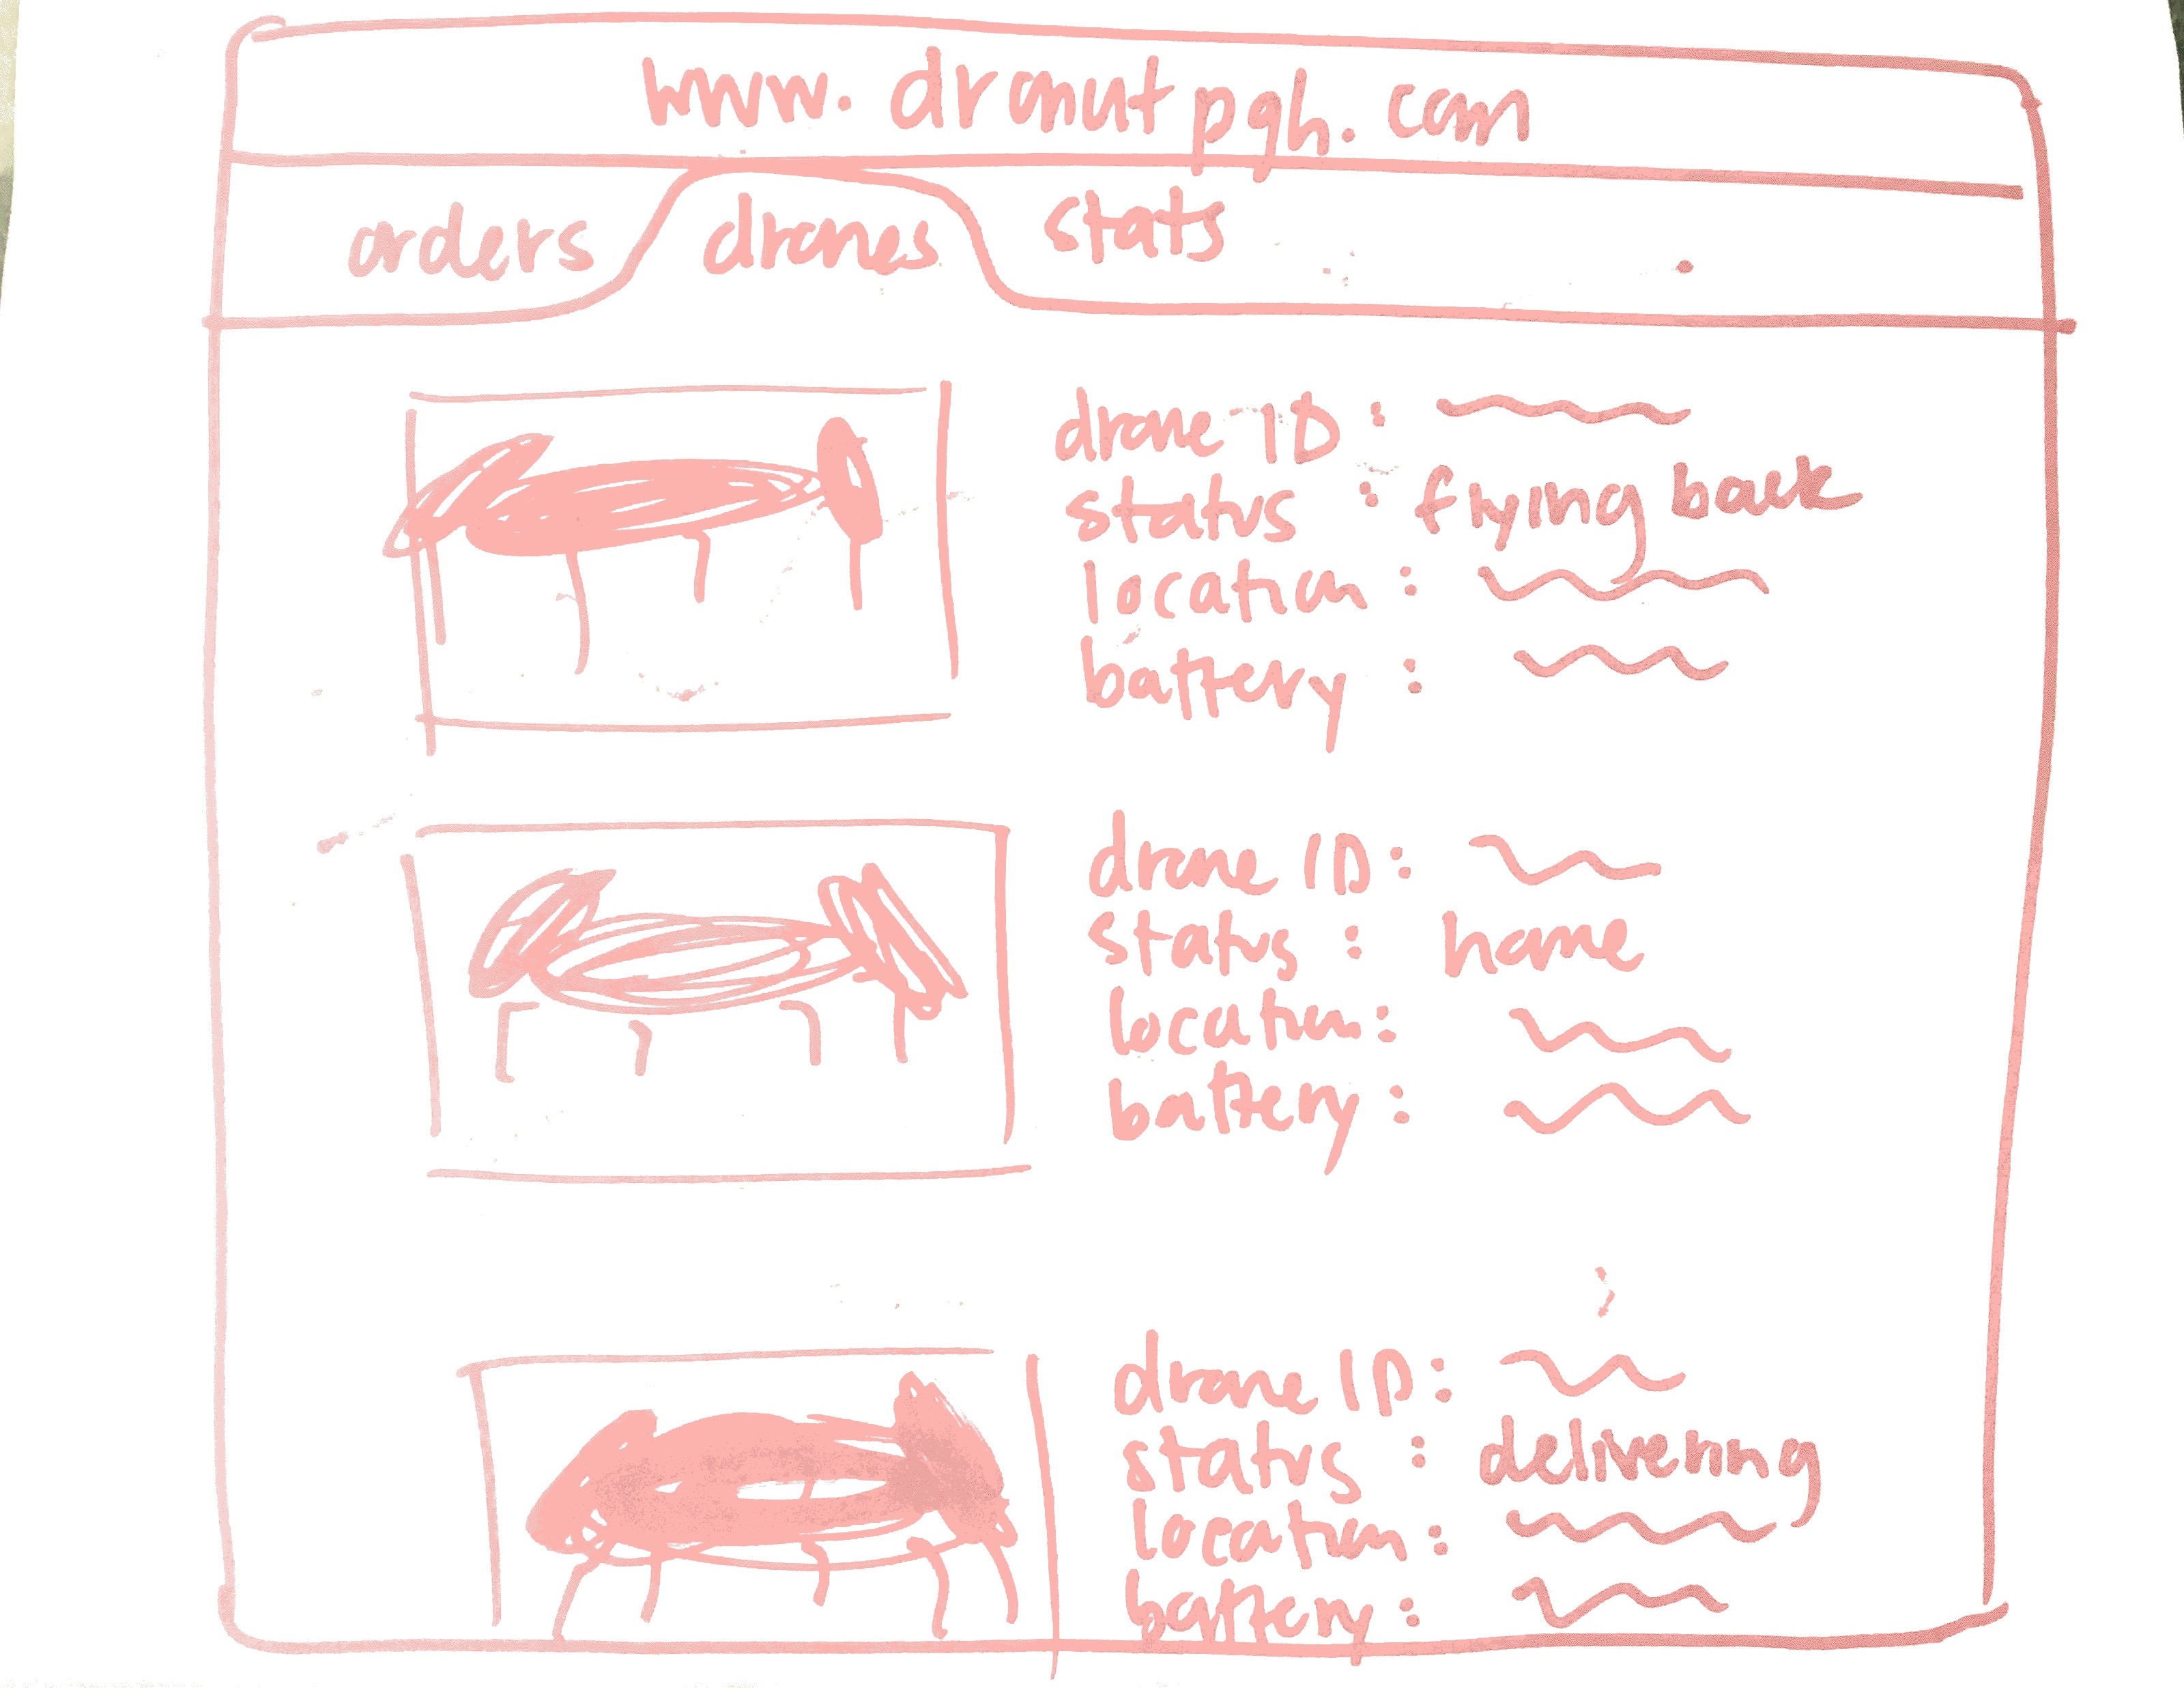 www.dronutpgh.com
orders drones stats
drone ID :
status : flying back
location :
battery :
drone ID :
status : home
location :
battery :
drone ID :
status : delivering
location :
battery :